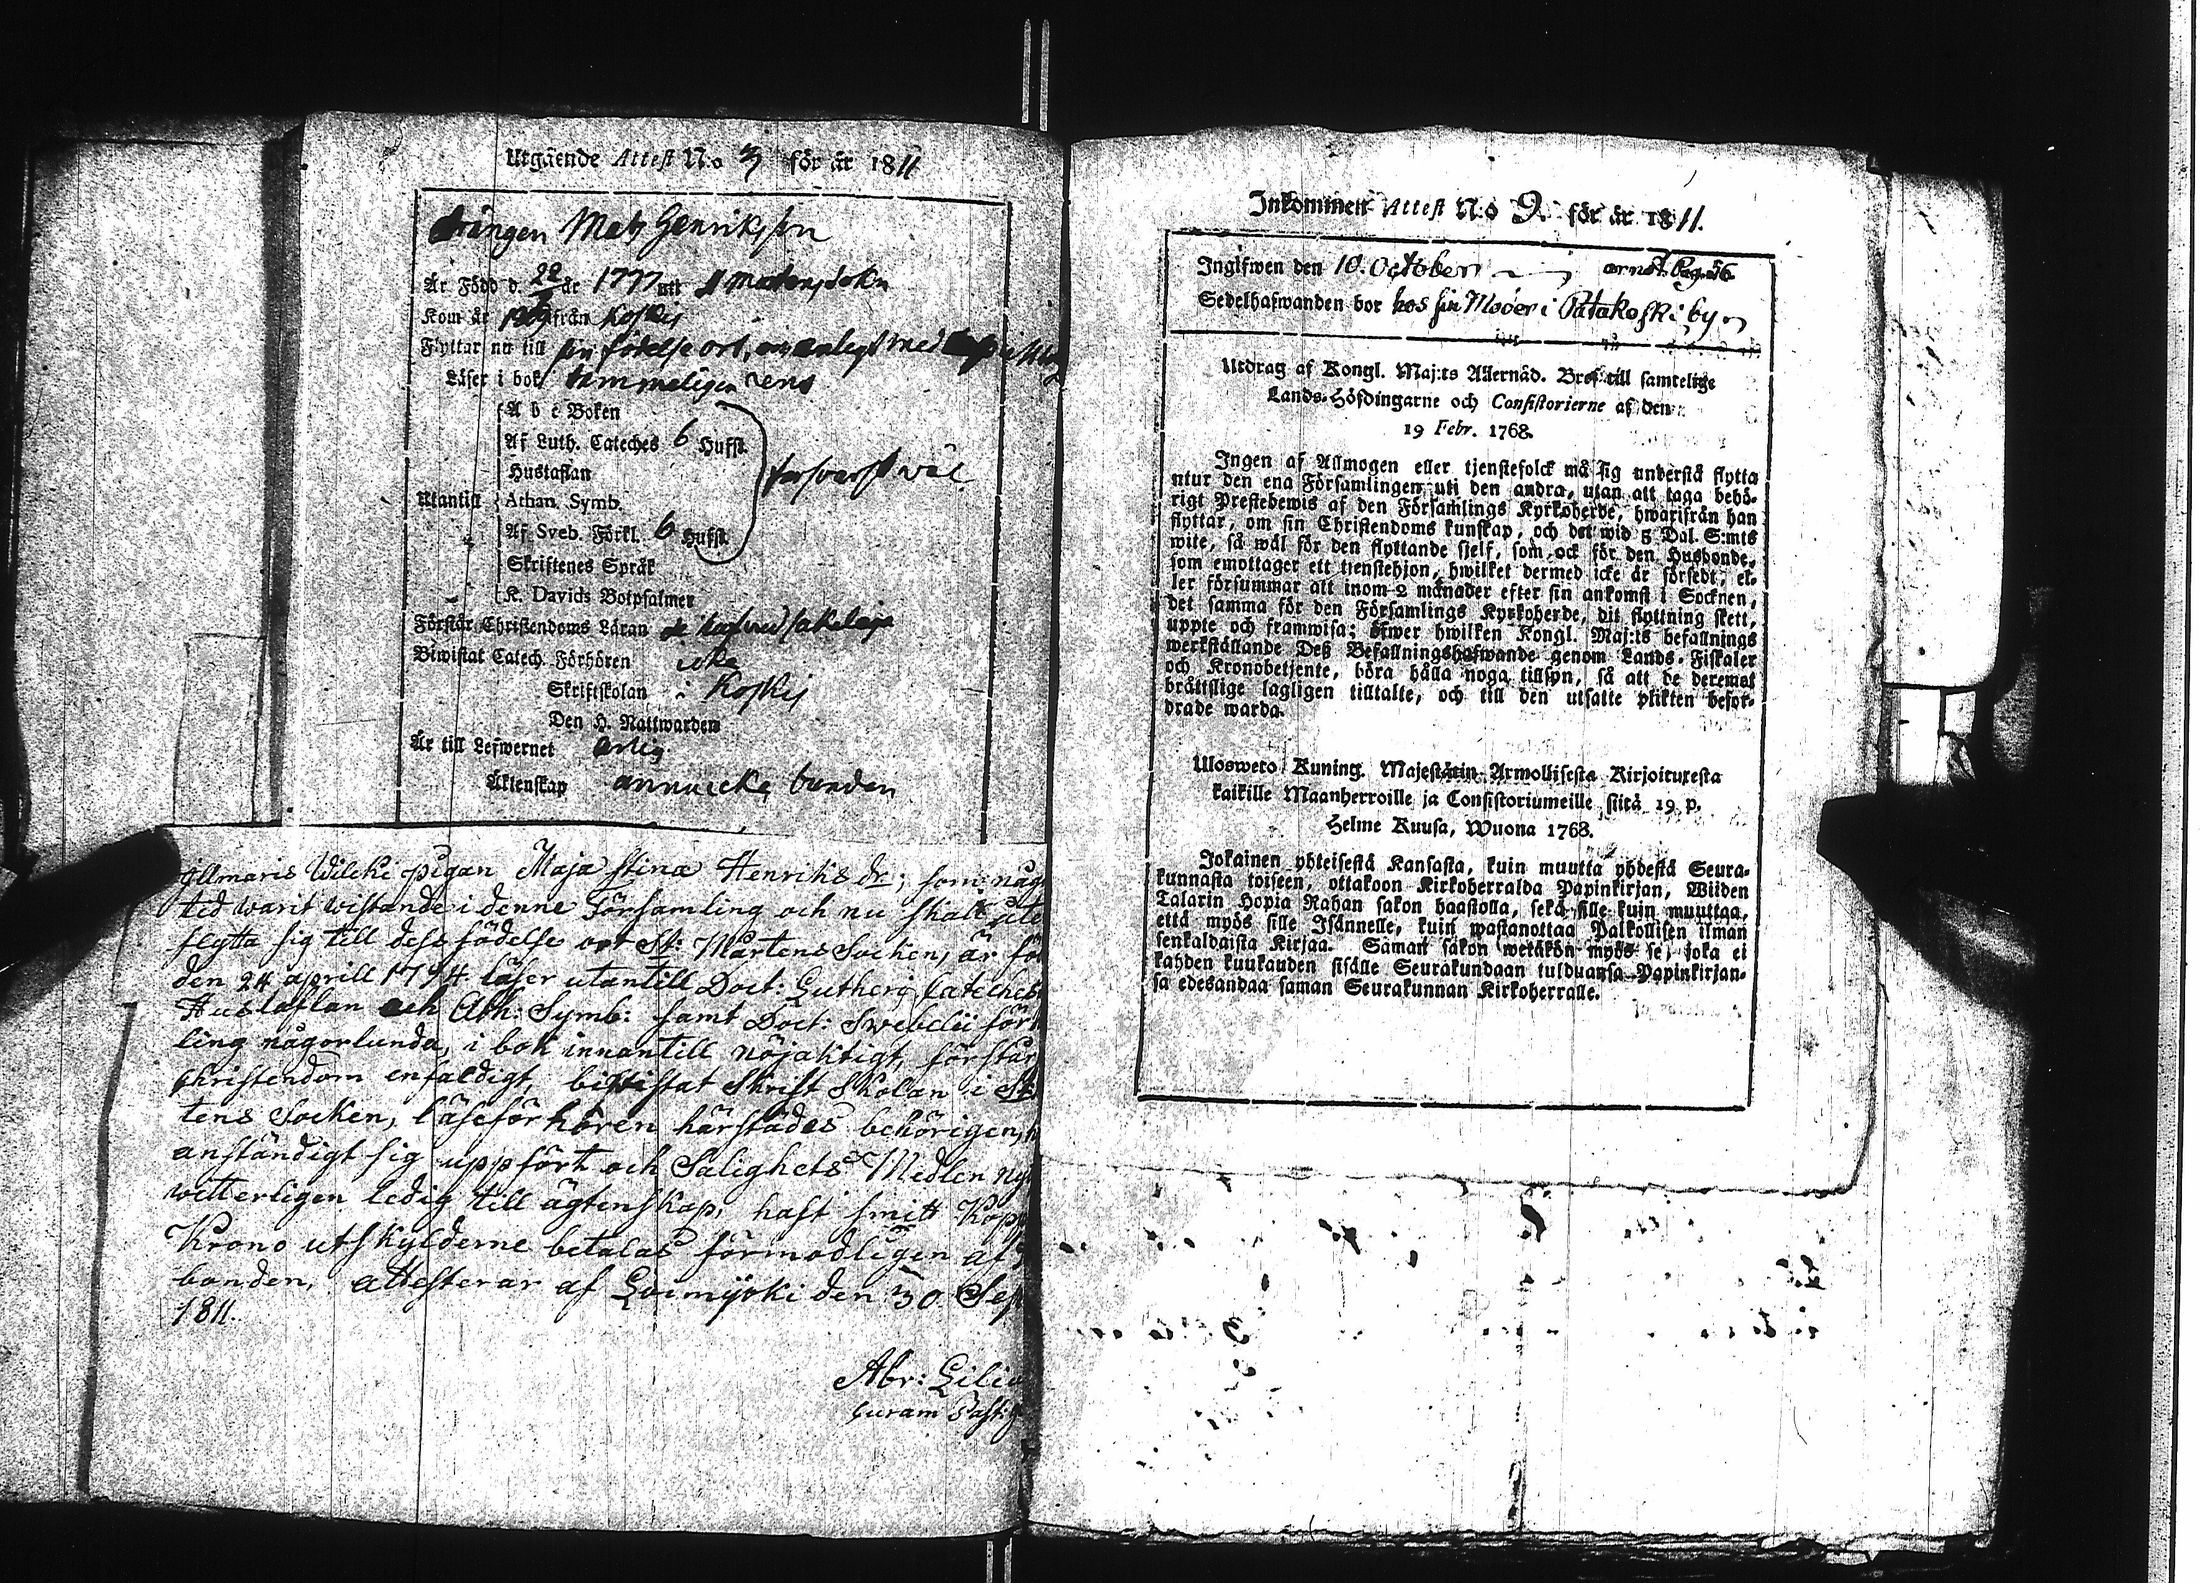 Utgående Attest N:o 3 för år 1811
drängen Mats Henriksson
Är Född d. 22 år 1777 uti S Mårtens sokn
Kom år från Koskis
Flyttar nu till sin födelse ort, med
Läser i bok tämmeligen rent
A b c Boken
Af Luth. Cateches 6 Hufst.
Hustaflan
Utantill Athan. Symb.
Af Sveb. Förkl. 6 Hufst.
Skriftenes Språk
K. Davids Botpsalmer
försvarst väl
Förstår Christendoms Läran
Biwistat Catech. Förhören icke
Skriftskolan i Koskis
Den H. Nattwarden
Är till Lefwernet ärlig
Äktenskap ännu icke bunden
Illmaris Wilcki pigan Maja Stina Henriks dr; som någ
tid warit wistande i denne Församling och nu skall åte
flytta sig till dess födelse ort St: Mårtens Socken, är fö
den 24 aprill 1794. läser utantill Doct: Lutheri Cateches
Hustaflan och Ath: Symb: samt Doct: Swebelii förk
ling någorlunda, i bok innantill nöjaktigt, förstår
christendom enfaldigt, biwistat Skrift Skolan i St:
tens Socken, läseförhören härstädes behörigen,
anständigt sig uppfört och Salighets Medlen ny
wetterligen ledig till ägtenskap, haft smitt Kopp
Krono utskylderne betalas förmodligen af
bonden, attesterar af Loimijoki den 30 Sep
1811.
Abr: Lilic
Curam Past: g
Inkommen Attest N:o 9. för år 1811.
Ingifwen den 10. October
Sedelhafwanden bor hos sin Moder i Patakoski by
Utdrag af Kongl. Maj:ts Allernåd. Bref till samtelige
Lands-Höfdingarne och Consistorierne af den
19 Febr. 1768.
Ingen af Allmogen eller tjenstefolck må sig understå flytta
utur den ena Församlingen uti den andra, utan att taga behö-
rigt Prestebewis af den Församlings Kyrkoherde, hwarifrån han
flyttar, om sin Christendoms kunskap, och det wid 5 Dal. S:mts
wite, så wäl för den flyttande sjelf, som ock för den Husbonde,
som emottager ett tjenstehjon, hwilket dermed icke är försedt, el-
ler försummar att inom 2 månader efter sin ankomst i Socknen,
det samma för den Församlings Kyrkoherde, dit flyttning skett,
uppte och framwisa; öfwer hwilken Kongl. Maj:ts befallnings
werkställande Deß Befallningshafwande genom Lands-Fiskaler
och Kronobetjente, böra hålla noga tillsyn, så att de deremot
bråttslige lagligen tilltalte, och till den utsatte plikten befor-
drade warda.
Ulosweto Kuning. Majestätin Armollisesta Kirjoituxesta
kaikille Maanherroille ja Consistoriumeille, siitä 19 p.
Helme Kuusa, Wuona 1768.
Jokainen yhteisestä Kansasta, kuin muutta yhdestä Seura-
kunnasta toiseen, ottakoon Kirkoherralda Papinkirjan, Wiiden
Talarin Hopia Rahan sakon haastolla, sekä sille kuin muuttaa,
että myös sille Isännelle, kuin wastanottaa Palkollisen ilman
senkaldaista Kirjaa. Saman sakon wetäkön myös se, joka ei
kahden kuukauden sisälle Seurakundaan tulduansa Papinkirjan-
sa edesandaa saman Seurakunnan Kirkoherralle.